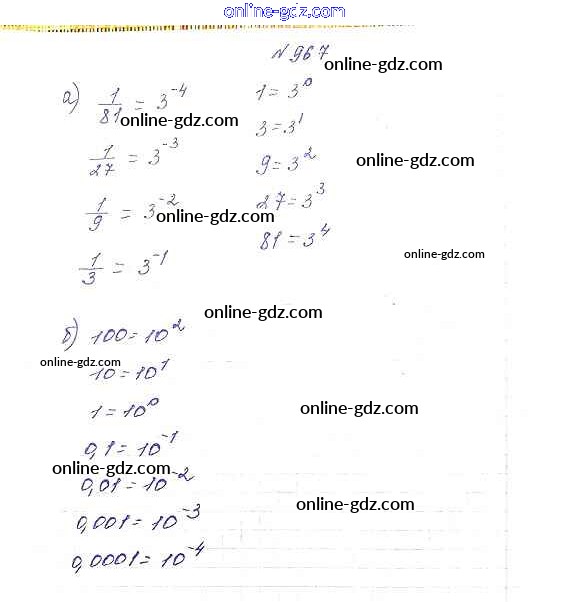 online-gdz.com
N 967
online-gdz.com
а) 1/81 = 3⁻⁴
online-gdz.com
1/27 = 3⁻³
1/9 = 3⁻²
online-gdz.com
1/3 = 3⁻¹
1 = 3⁰
3 = 3¹
9 = 3²
online-gdz.com
27 = 3³
81 = 3⁴
online-gdz.com
online-gdz.com
б) 100 = 10²
online-gdz.com
10 = 10¹
1 = 10⁰
online-gdz.com
0,1 = 10⁻¹
online-gdz.com
0,01 = 10⁻²
0,001 = 10⁻³
online-gdz.com
0,0001 = 10⁻⁴